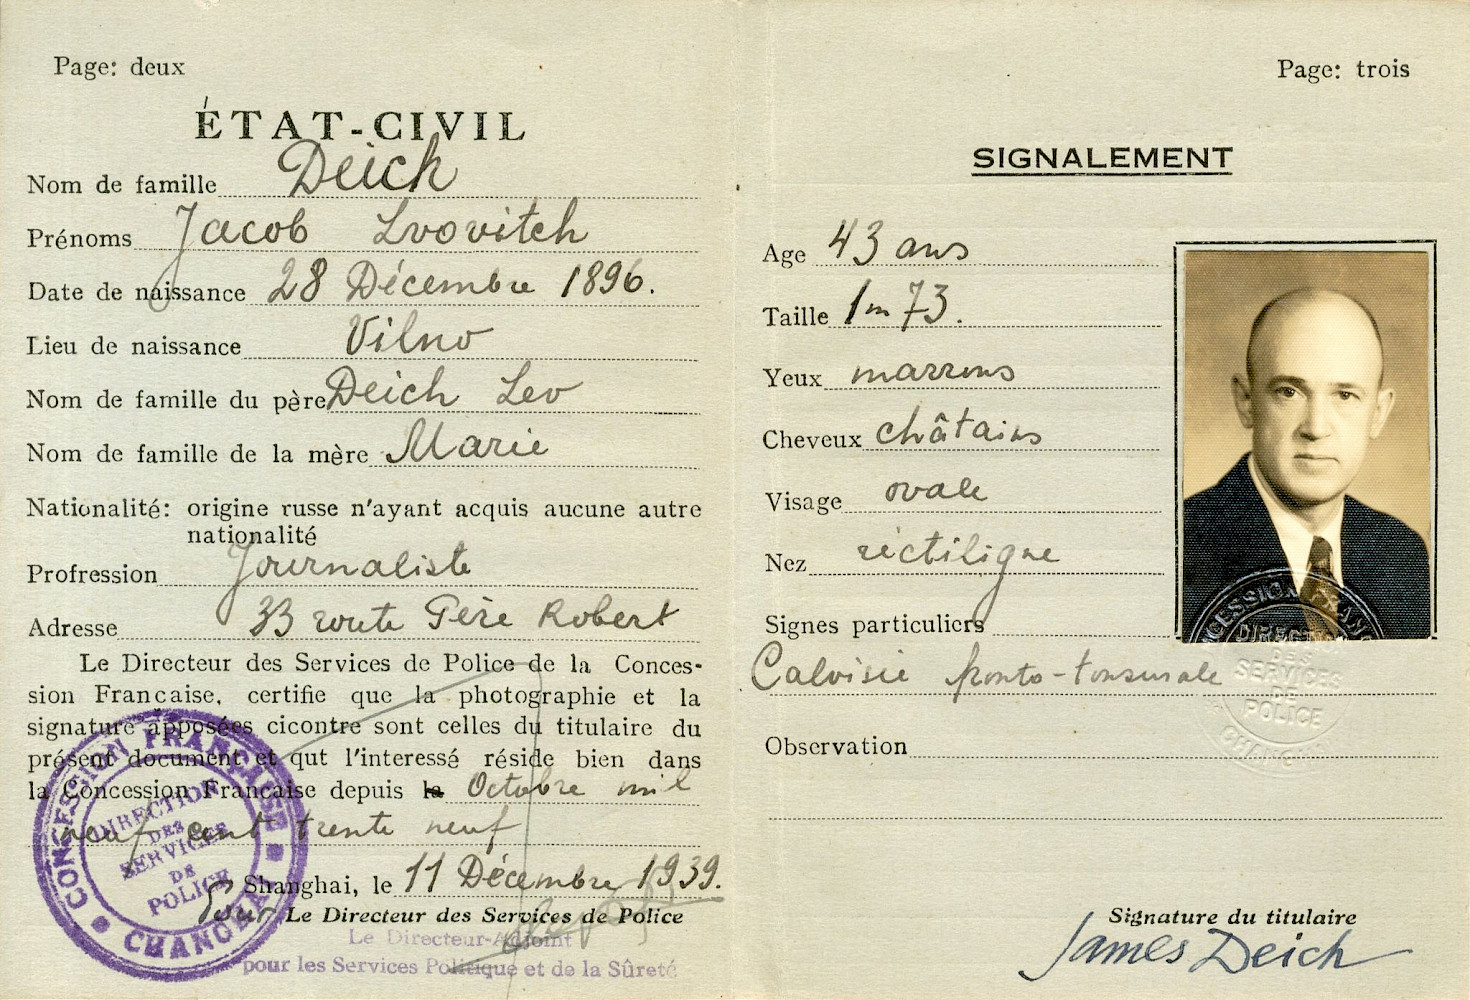 Page: deux
ÉTAT-CIVIL
Nom de famille Deich
Prénoms Jacob Lvovitch
Date de naissance 28 Décembre 1896.
Lieu de naissance Vilno
Nom de famille du père Deich Lev
Nom de famille de la mère Marie
Nationalité: origine russe n'ayant acquis aucune autre
nationalité
Profression Journaliste
Adresse 33 route Père Robert
Le Directeur des Services de Police de la Conces-
sion Française, certifie que la photographie et la
signature apposées cicontre sont celles du titulaire du
présent document et qut l'interessé réside bien dans
la Concession Française depuis le Octobre mil
neuf cent trente neuf
Shanghai, le 11 Décembre 1939.
Pour Le Directeur des Services de Police
Le Directeur-Adjoint
pour les Services Politique et de la Sûreté
CONCESSION FRANÇAISE
DIRECTION
DES
SERVICES
DE
POLICE
CHANGHAI
Page: trois
SIGNALEMENT
Age 43 ans
Taille 1m 73.
Yeux marrons
Cheveux châtains
Visage ovale
Nez rectiligne
Signes particuliers
Calvisie fronto-tonsurale
Observation
CONCESSION FRANÇAISE
DIRECTION
DES
SERVICES
DE
POLICE
CHANGHAI
Signature du titulaire
James Deich